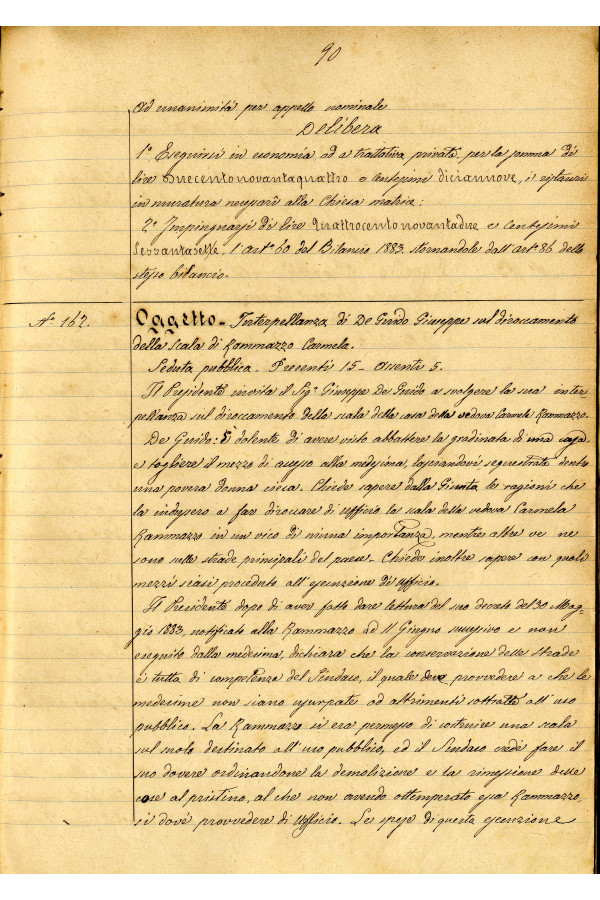 90
Ad unanimità per appello nominale
Delibera
1° Eseguirsi in economia ed a trattativa privata, per la somma di
lire Duecentonovantaquattro e centesimi diciannove, i
in muratura necessarî alla Chiesa matrice;
2° Impinguarsi di lire Quattrocentonovantadue e Centesimi
Sessantasette, l'art° 60 del Bilancio 1883 stornandole dall'art° 86 dello
stesso bilancio.
N° 162.
Oggetto - Interpellanza di De Guido Giuseppe sul diroccamento
della Scala di Rammazzo Carmela.
Seduta pubblica - Presenti 15 - Assenti 5.
Il Presidente invita il Sig° Giuseppe De Guido a svolgere la sua inter
pellanza sul diroccamento della scala della casa della vedova Carmela Rammazzo.
De Guido: È dolente di avere visto abbattere la gradinata di una casa
e togliere il mezzo di accesso alla medesima, lasciandovi sequestrata dentro
una povera donna cieca. Chiede sapere dalla Giunta le ragioni che
la indussero a far diroccare di Ufficio la scala della vedova Carmela
Rammazzo in un vico di niuna importanza, mentre altre ve ne
sono sulle strade principali del paese - Chiede inoltre sapere con quali
mezzi siasi proceduto all'esecuzione di Ufficio.
Il Presidente dopo di aver fatto dare lettura del suo decreto del 30 Mag-
gio 1883, notificato alla Rammazzo ad 11 Giugno successivo e non
eseguito dalla medesima, dichiara che la conservazione delle strade
è tutta di competenza del Sindaco, il quale deve provvedere a che le
medesime non siano usurpate od altrimenti sottratte all'uso
pubblico. La Rammazzo si era permesso di costruire una scala
sul suolo destinato all'uso pubblico, ed il Sindaco credè fare il
suo dovere ordinandone la demolizione e la rimessione delle
cose al pristino, al che non avendo ottemperato essa Rammazzo,
si dovè provvedere di Ufficio. Le spese di questa esecuzione